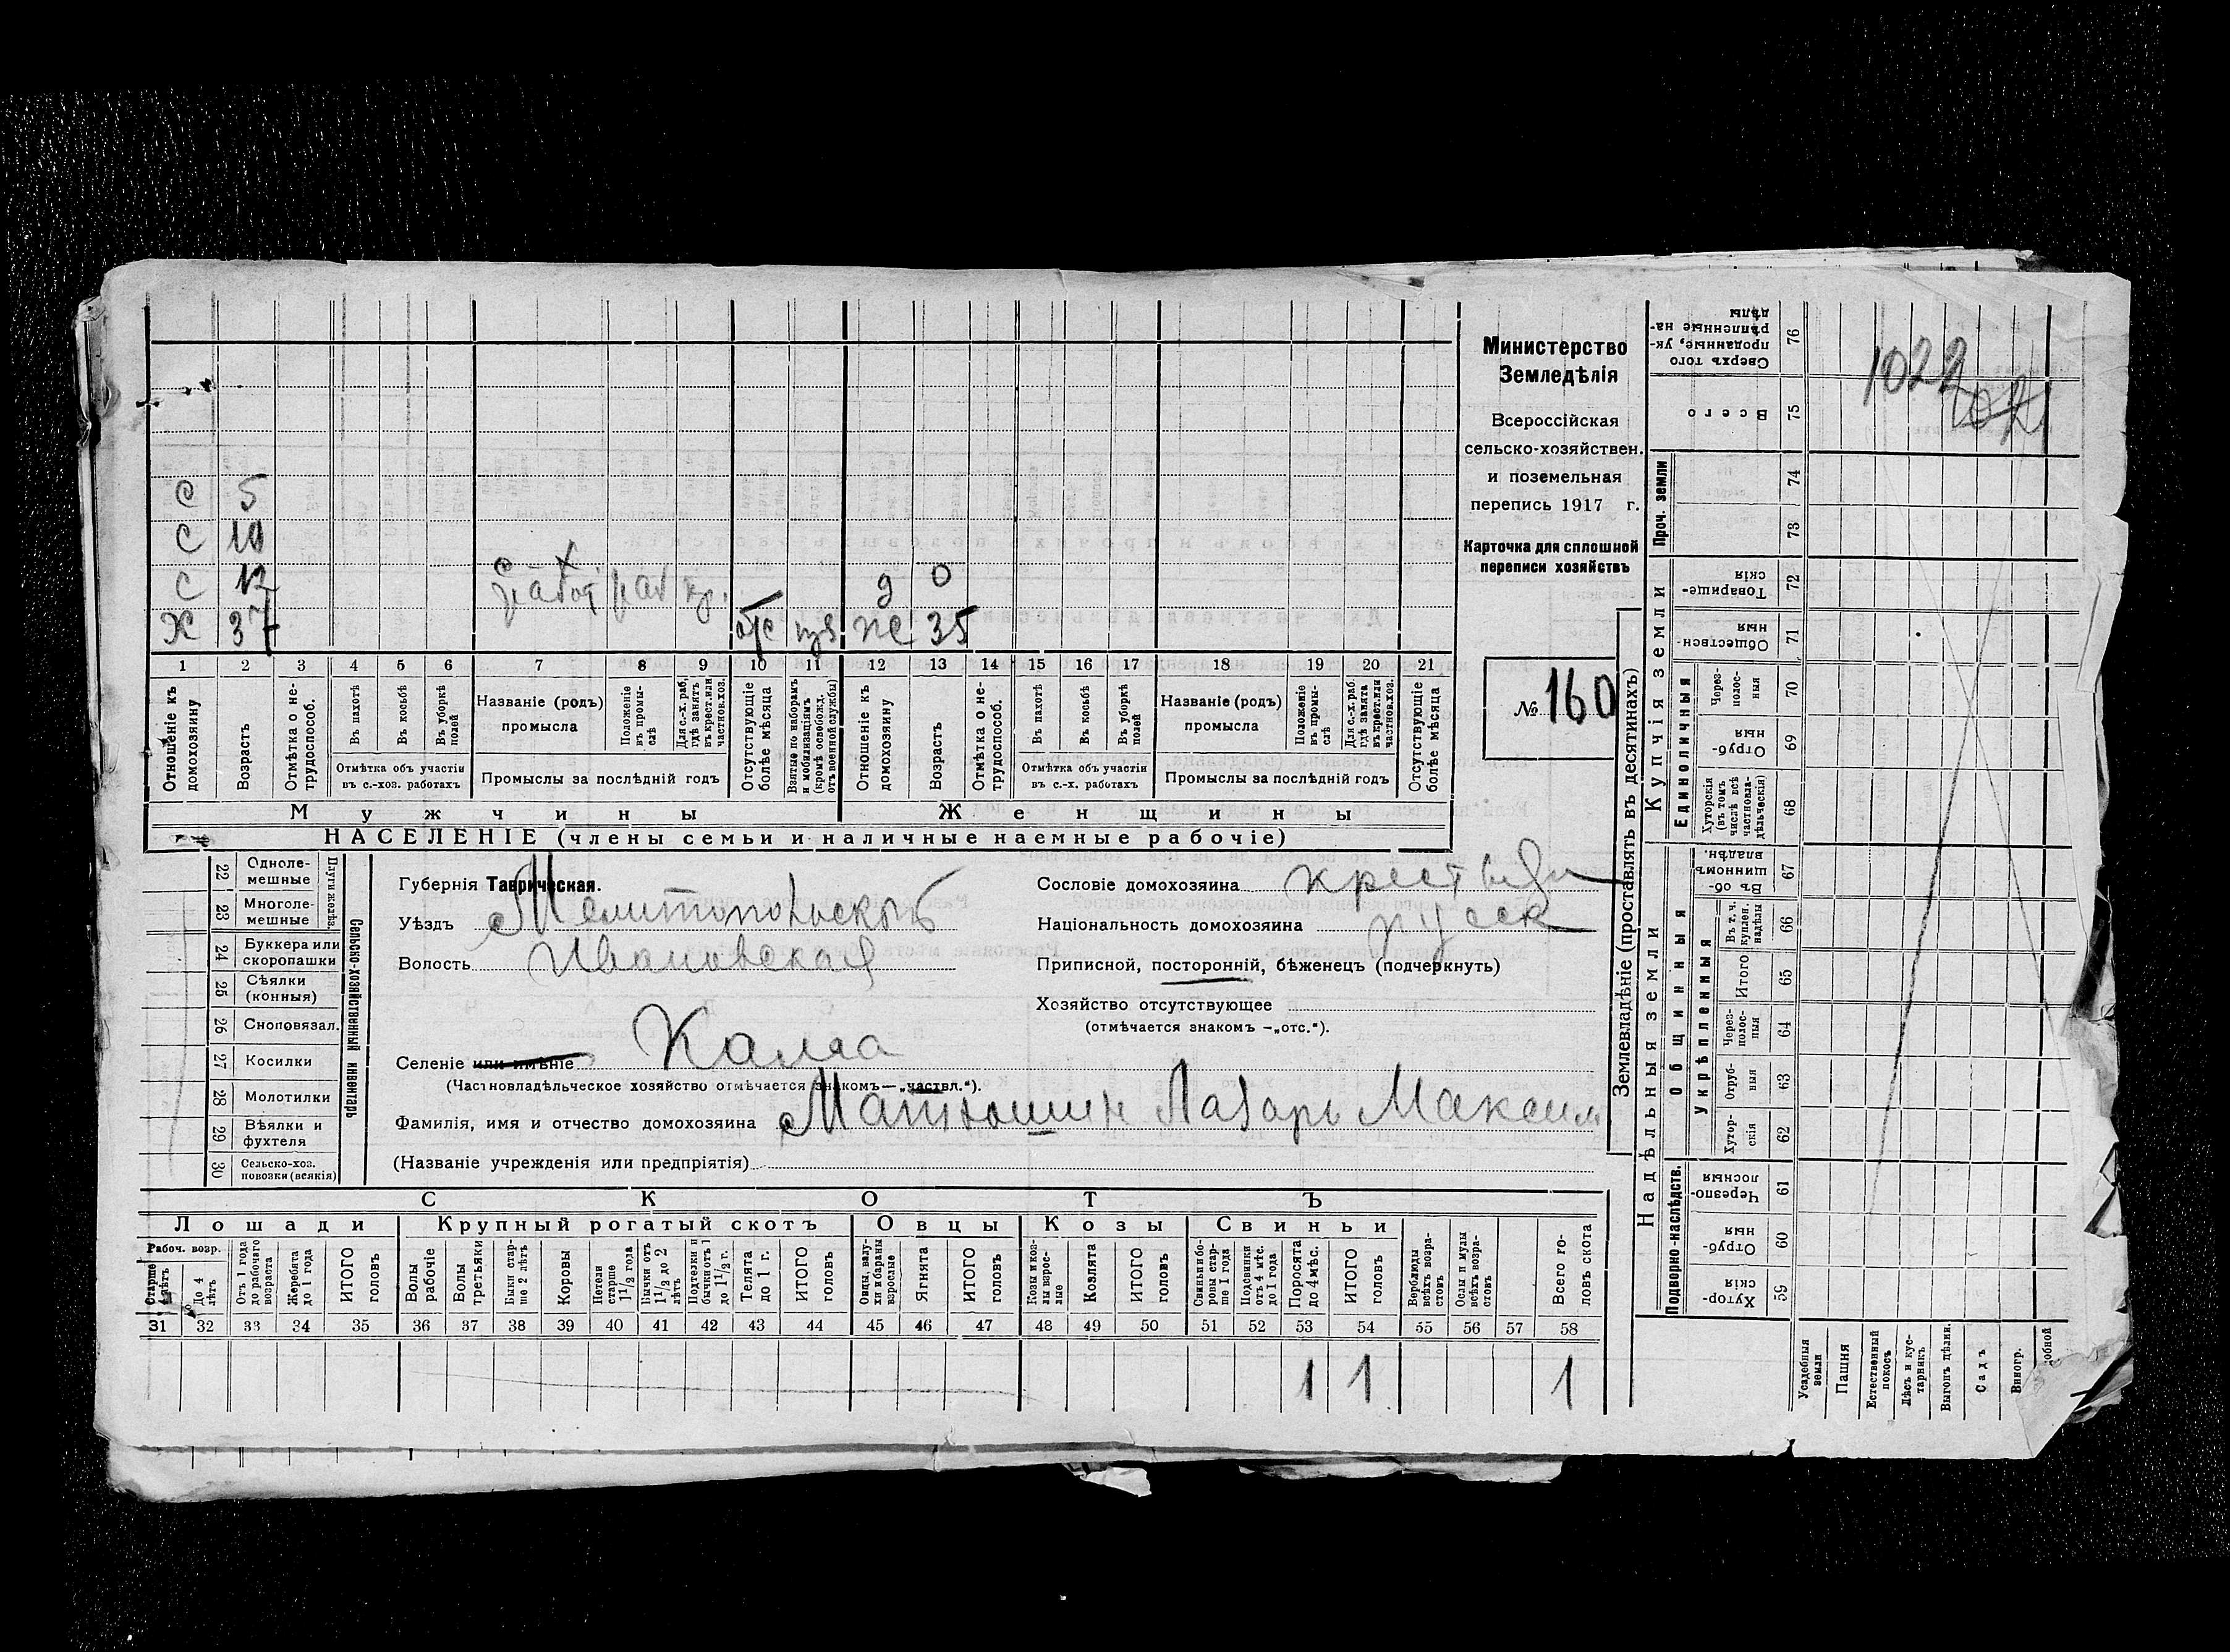 С 5
С 10
С 12 с. х. д 0
Х 37 работ раб кр. отс взя Же 35
1 2 3 4 5 6 7 8 9 10 11 12 13 14 15 16 17 18 19 20 21
Отношеніе къ домохозяину
Возрастъ
Отмѣтка о нетрудоспособ.
Въ пахотѣ
Въ косьбѣ
Въ уборкѣ полей
Отмѣтка объ участіи въ с.-хоз. работахъ
Названіе (родъ) промысла
Положеніе въ промыслѣ
Для с.-х. раб. гдѣ занятъ въ крест. или частнов. хоз.
Промыслы за послѣдній годъ
Отсутствующіе болѣе мѣсяца
Взятые по наборамъ и мобилизаціямъ (кромѣ освобожд. отъ военной службы)
Отношеніе къ домохозяину
Возрастъ
Отмѣтка о нетрудоспособ.
Въ пахотѣ
Въ косьбѣ
Въ уборкѣ полей
Отмѣтка объ участіи въ с.-х. работахъ
Названіе (родъ) промысла
Положеніе въ промыслѣ
Для с.-х. раб. гдѣ занята въ крест. или частнов. хоз.
Промыслы за послѣдній годъ
Отсутствующіе болѣе мѣсяца
Мужчины Женщины
НАСЕЛЕНІЕ (члены семьи и наличные наемные рабочіе)
Министерство
Земледѣлія
Всероссійская
сельско-хозяйствен.
и поземельная
перепись 1917 г.
Карточка для сплошной
переписи хозяйствъ
№ 160
22 Однолемешные
23 Многолемешные
Плуги желѣз.
24 Буккера или скоропашки
25 Сѣялки (конныя)
26 Сноповязал.
27 Косилки
28 Молотилки
29 Вѣялки и фухтеля
30 Сельско-хоз. повозки (всякія)
Сельско-хозяйственный инвентарь
Губернія Таврическая.
Уѣздъ Мелитопольскій
Волость Ивановская
Селеніе или имѣніе Калга
(Частновладѣльческое хозяйство отмѣчается знакомъ—„частвл.“).
Сословіе домохозяина крестьян
Національность домохозяина русск
Приписной, посторонній, бѣженецъ (подчеркнуть)
Хозяйство отсутствующее
(отмѣчается знакомъ —„отс.“).
Фамилія, имя и отчество домохозяина Матюшин Лазарь Максим
(Названіе учрежденія или предпріятія)
СКОТЪ
Лошади Крупный рогатый скотъ Овцы Козы Свиньи
Рабоч. возр.
Старше 4 лѣтъ
До 4 лѣтъ
Отъ 1 года до рабочаго возраста
Жеребята до 1 года
ИТОГО головъ
Волы рабочіе
Волы третьяки
Быки старше 2 лѣтъ
Коровы
Нетели старше 1½ года
Бычки отъ 1½ до 2 лѣтъ
Подтелки и бычки отъ 1 до 1½ г.
Телята до 1 г.
ИТОГО головъ
Овцы, валухи и бараны взрослые
Ягнята
ИТОГО головъ
Козы и козлы взрослые
Козлята
ИТОГО головъ
Свиньи и боровы старше 1 года
Подсвинки отъ 4 мѣс. до 1 года
Поросята до 4 мѣс.
ИТОГО головъ
Верблюды всѣхъ возрастовъ
Ослы и мулы всѣхъ возрастовъ
Всего головъ скота
31 32 33 34 35 36 37 38 39 40 41 42 43 44 45 46 47 48 49 50 51 52 53 54 55 56 57 58
1 1 1
Землевладѣніе (проставлять въ десятинахъ)
Купчія земли
Надѣльныя земли
Сверхъ того проданные, укрѣпленные надѣлы 76
Всего 75
Проч. земли
74
73
Товарищескія 72
Общественныя 71
Единоличныя
Черезполосныя 70
Отрубныя 69
Хуторскія (въ томъ числѣ всѣ частновладѣльческія) 68
Общинныя
Въ общинномъ владѣн. 67
Укрѣпленныя
Въ т. ч. куплен. надѣлы 66
Итого 65
Черезполосныя 64
Отрубныя 63
Хуторскія 62
Подворно-наслѣдств.
Черезполосныя 61
Отрубныя 60
Хуторскія 59
1022
Усадебныя земли
Пашня
Естественный покосъ
Лѣсъ и кустарникъ
Выгонъ дѣлян.
Садъ
Виногр.